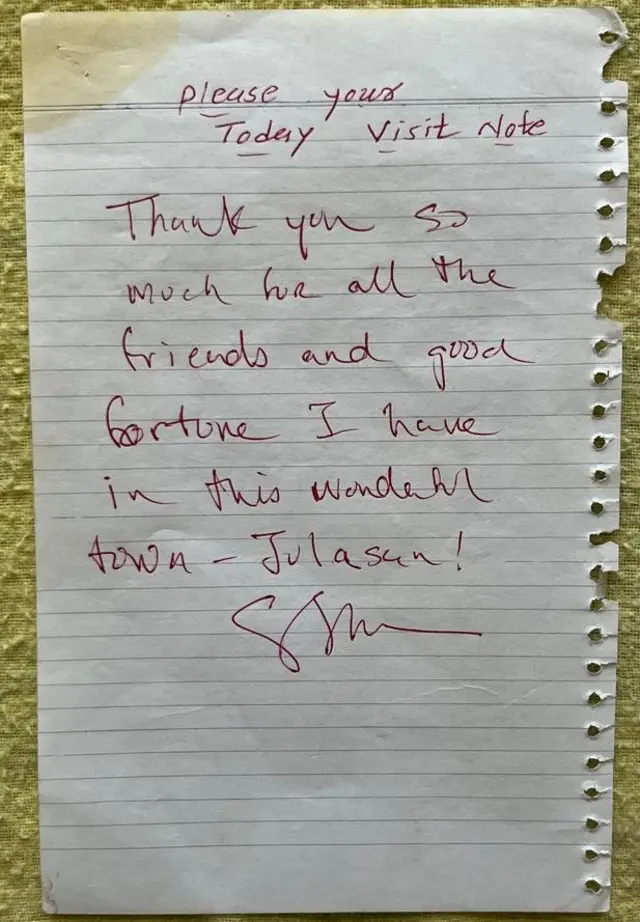 please your
Today Visit Note
Thank you so
much for all the
friends and good
fortune I have
in this wonderful
town - Julasan!